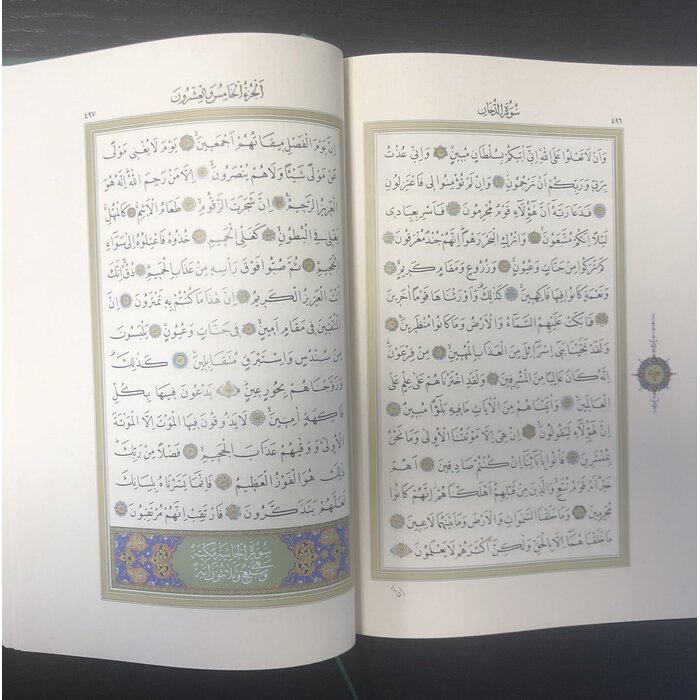 سُورَةُ الدُّخَانِ
٤٩٦
وَاَنْ لَا تَعْلُوا عَلَى اللّٰهِ اِنّٖٓي اٰتٖيكُمْ بِسُلْطَانٍ مُبٖينٍۚ ﴿١٩﴾ وَاِنّٖي عُذْتُ
بِرَبّٖي وَرَبِّكُمْ اَنْ تَرْجُمُونِۘ ﴿٢٠﴾ وَاِنْ لَمْ تُؤْمِنُوا لٖي فَاعْتَزِلُونِ
﴿٢١﴾ فَدَعَا رَبَّهُٓ اَنَّ هٰٓؤُ۬لَٓاءِ قَوْمٌ مُجْرِمُونَ ﴿٢٢﴾ فَاَسْرِ بِعِبَادٖي
لَيْلًا اِنَّكُمْ مُتَّبَعُونَۙ ﴿٢٣﴾ وَاتْرُكِ الْبَحْرَ رَهْوًاۜ اِنَّهُمْ جُنْدٌ مُغْرَقُونَ ﴿٢٤﴾
كَمْ تَرَكُوا مِنْ جَنَّاتٍ وَعُيُونٍۙ ﴿٢٥﴾ وَزُرُوعٍ وَمَقَامٍ كَرٖيمٍۙ ﴿٢٦﴾
وَنَعْمَةٍ كَانُوا فٖيهَا فَاكِهٖينَۙ ﴿٢٧﴾ كَذٰلِكَ۠ وَاَوْرَثْنَاهَا قَوْمًا اٰخَرٖينَ
﴿٢٨﴾ فَمَا بَكَتْ عَلَيْهِمُ السَّمَٓاءُ وَالْاَرْضُ وَمَا كَانُوا مُنْظَرٖينَ۟ ﴿٢٩﴾
وَلَقَدْ نَجَّيْنَا بَنٖٓي اِسْرَٓائٖلَ مِنَ الْعَذَابِ الْمُهٖينِۙ ﴿٣٠﴾ مِنْ فِرْعَوْنَۜ
اِنَّهُ كَانَ عَالِيًا مِنَ الْمُسْرِفٖينَ ﴿٣١﴾ وَلَقَدِ اخْتَرْنَاهُمْ عَلٰى عِلْمٍ عَلَى
الْعَالَمٖينَۚ ﴿٣٢﴾ وَاٰتَيْنَاهُمْ مِنَ الْاٰيَاتِ مَا فٖيهِ بَلٰٓؤٌا مُبٖينٌ ﴿٣٣﴾
اِنَّ هٰٓؤُ۬لَٓاءِ لَيَقُولُونَۙ ﴿٣٤﴾ اِنْ هِيَ اِلَّا مَوْتَتُنَا الْاُو۫لٰى وَمَا نَحْنُ
بِمُنْشَرٖينَ ﴿٣٥﴾ فَأْتُوا بِاٰبَٓائِنَٓا اِنْ كُنْتُمْ صَادِقٖينَ ﴿٣٦﴾ اَهُمْ
خَيْرٌ اَمْ قَوْمُ تُبَّعٍۙ وَالَّذٖينَ مِنْ قَبْلِهِمْۜ اَهْلَكْنَاهُمْۘ اِنَّهُمْ كَانُوا
مُجْرِمٖينَ ﴿٣٧﴾ وَمَا خَلَقْنَا السَّمٰوَاتِ وَالْاَرْضَ وَمَا بَيْنَهُمَا لَاعِبٖينَ ﴿٣٨﴾
مَا خَلَقْنَاهُمَٓا اِلَّا بِالْحَقِّ وَلٰكِنَّ اَكْثَرَهُمْ لَا يَعْلَمُونَ ﴿٣٩﴾
اِنَّ
اَلْجُزْءُ الْخَامِسُ وَالْعِشْرُونَ
٤٩٧
اِنَّ يَوْمَ الْفَصْلِ مٖيقَاتُهُمْ اَجْمَعٖينَۙ ﴿٤٠﴾ يَوْمَ لَا يُغْنٖي مَوْلًى
عَنْ مَوْلًى شَيْـًٔا وَلَا هُمْ يُنْصَرُونَۙ ﴿٤١﴾ اِلَّا مَنْ رَحِمَ اللّٰهُۜ اِنَّهُ هُوَ
الْعَزٖيزُ الرَّحٖيمُ۟ ﴿٤٢﴾ اِنَّ شَجَرَتَ الزَّقُّومِۙ ﴿٤٣﴾ طَعَامُ الْاَثٖيمِۚۛ ﴿٤٤﴾ كَالْمُهْلِۚۛ
يَغْلٖي فِي الْبُطُونِۙ ﴿٤٥﴾ كَغَلْيِ الْحَمٖيمِ ﴿٤٦﴾ خُذُوهُ فَاعْتِلُوهُ اِلٰى سَوَٓاءِ
الْجَحٖيمِۗ ﴿٤٧﴾ ثُمَّ صُبُّوا فَوْقَ رَأْسِهٖ مِنْ عَذَابِ الْحَمٖيمِۜ ﴿٤٨﴾ ذُقْۚ اِنَّكَ
اَنْتَ الْعَزٖيزُ الْكَرٖيمُ ﴿٤٩﴾ اِنَّ هٰذَا مَا كُنْتُمْ بِهٖ تَمْتَرُونَ ﴿٥٠﴾ اِنَّ
الْمُتَّقٖينَ فٖي مَقَامٍ اَمٖينٍۙ ﴿٥١﴾ فٖي جَنَّاتٍ وَعُيُونٍۙ ﴿٥٢﴾ يَلْبَسُونَ
مِنْ سُنْدُسٍ وَاِسْتَبْرَقٍ مُتَقَابِلٖينَۙ ﴿٥٣﴾ كَذٰلِكَ۠
وَزَوَّجْنَاهُمْ بِحُورٍ عٖينٍۜ ﴿٥٤﴾ يَدْعُونَ فٖيهَا بِكُلِّ
فَاكِهَةٍ اٰمِنٖينَۙ ﴿٥٥﴾ لَا يَذُوقُونَ فٖيهَا الْمَوْتَ اِلَّا الْمَوْتَةَ
الْاُو۫لٰىۚ وَوَقٰيهُمْ عَذَابَ الْجَحٖيمِۙ ﴿٥٦﴾ فَضْلًا مِنْ رَبِّكَۜ
ذٰلِكَ هُوَ الْفَوْزُ الْعَظٖيمُ ﴿٥٧﴾ فَاِنَّمَا يَسَّرْنَاهُ بِلِسَانِكَ
لَعَلَّهُمْ يَتَذَكَّرُونَ ﴿٥٨﴾ فَارْتَقِبْ اِنَّهُمْ مُرْتَقِبُونَ ﴿٥٩﴾
سُورَةُ الْجَاثِيَةِ مَكِّيَّةٌ
وَهِيَ سَبْعٌ وَثَلَاثُونَ اٰيَةً